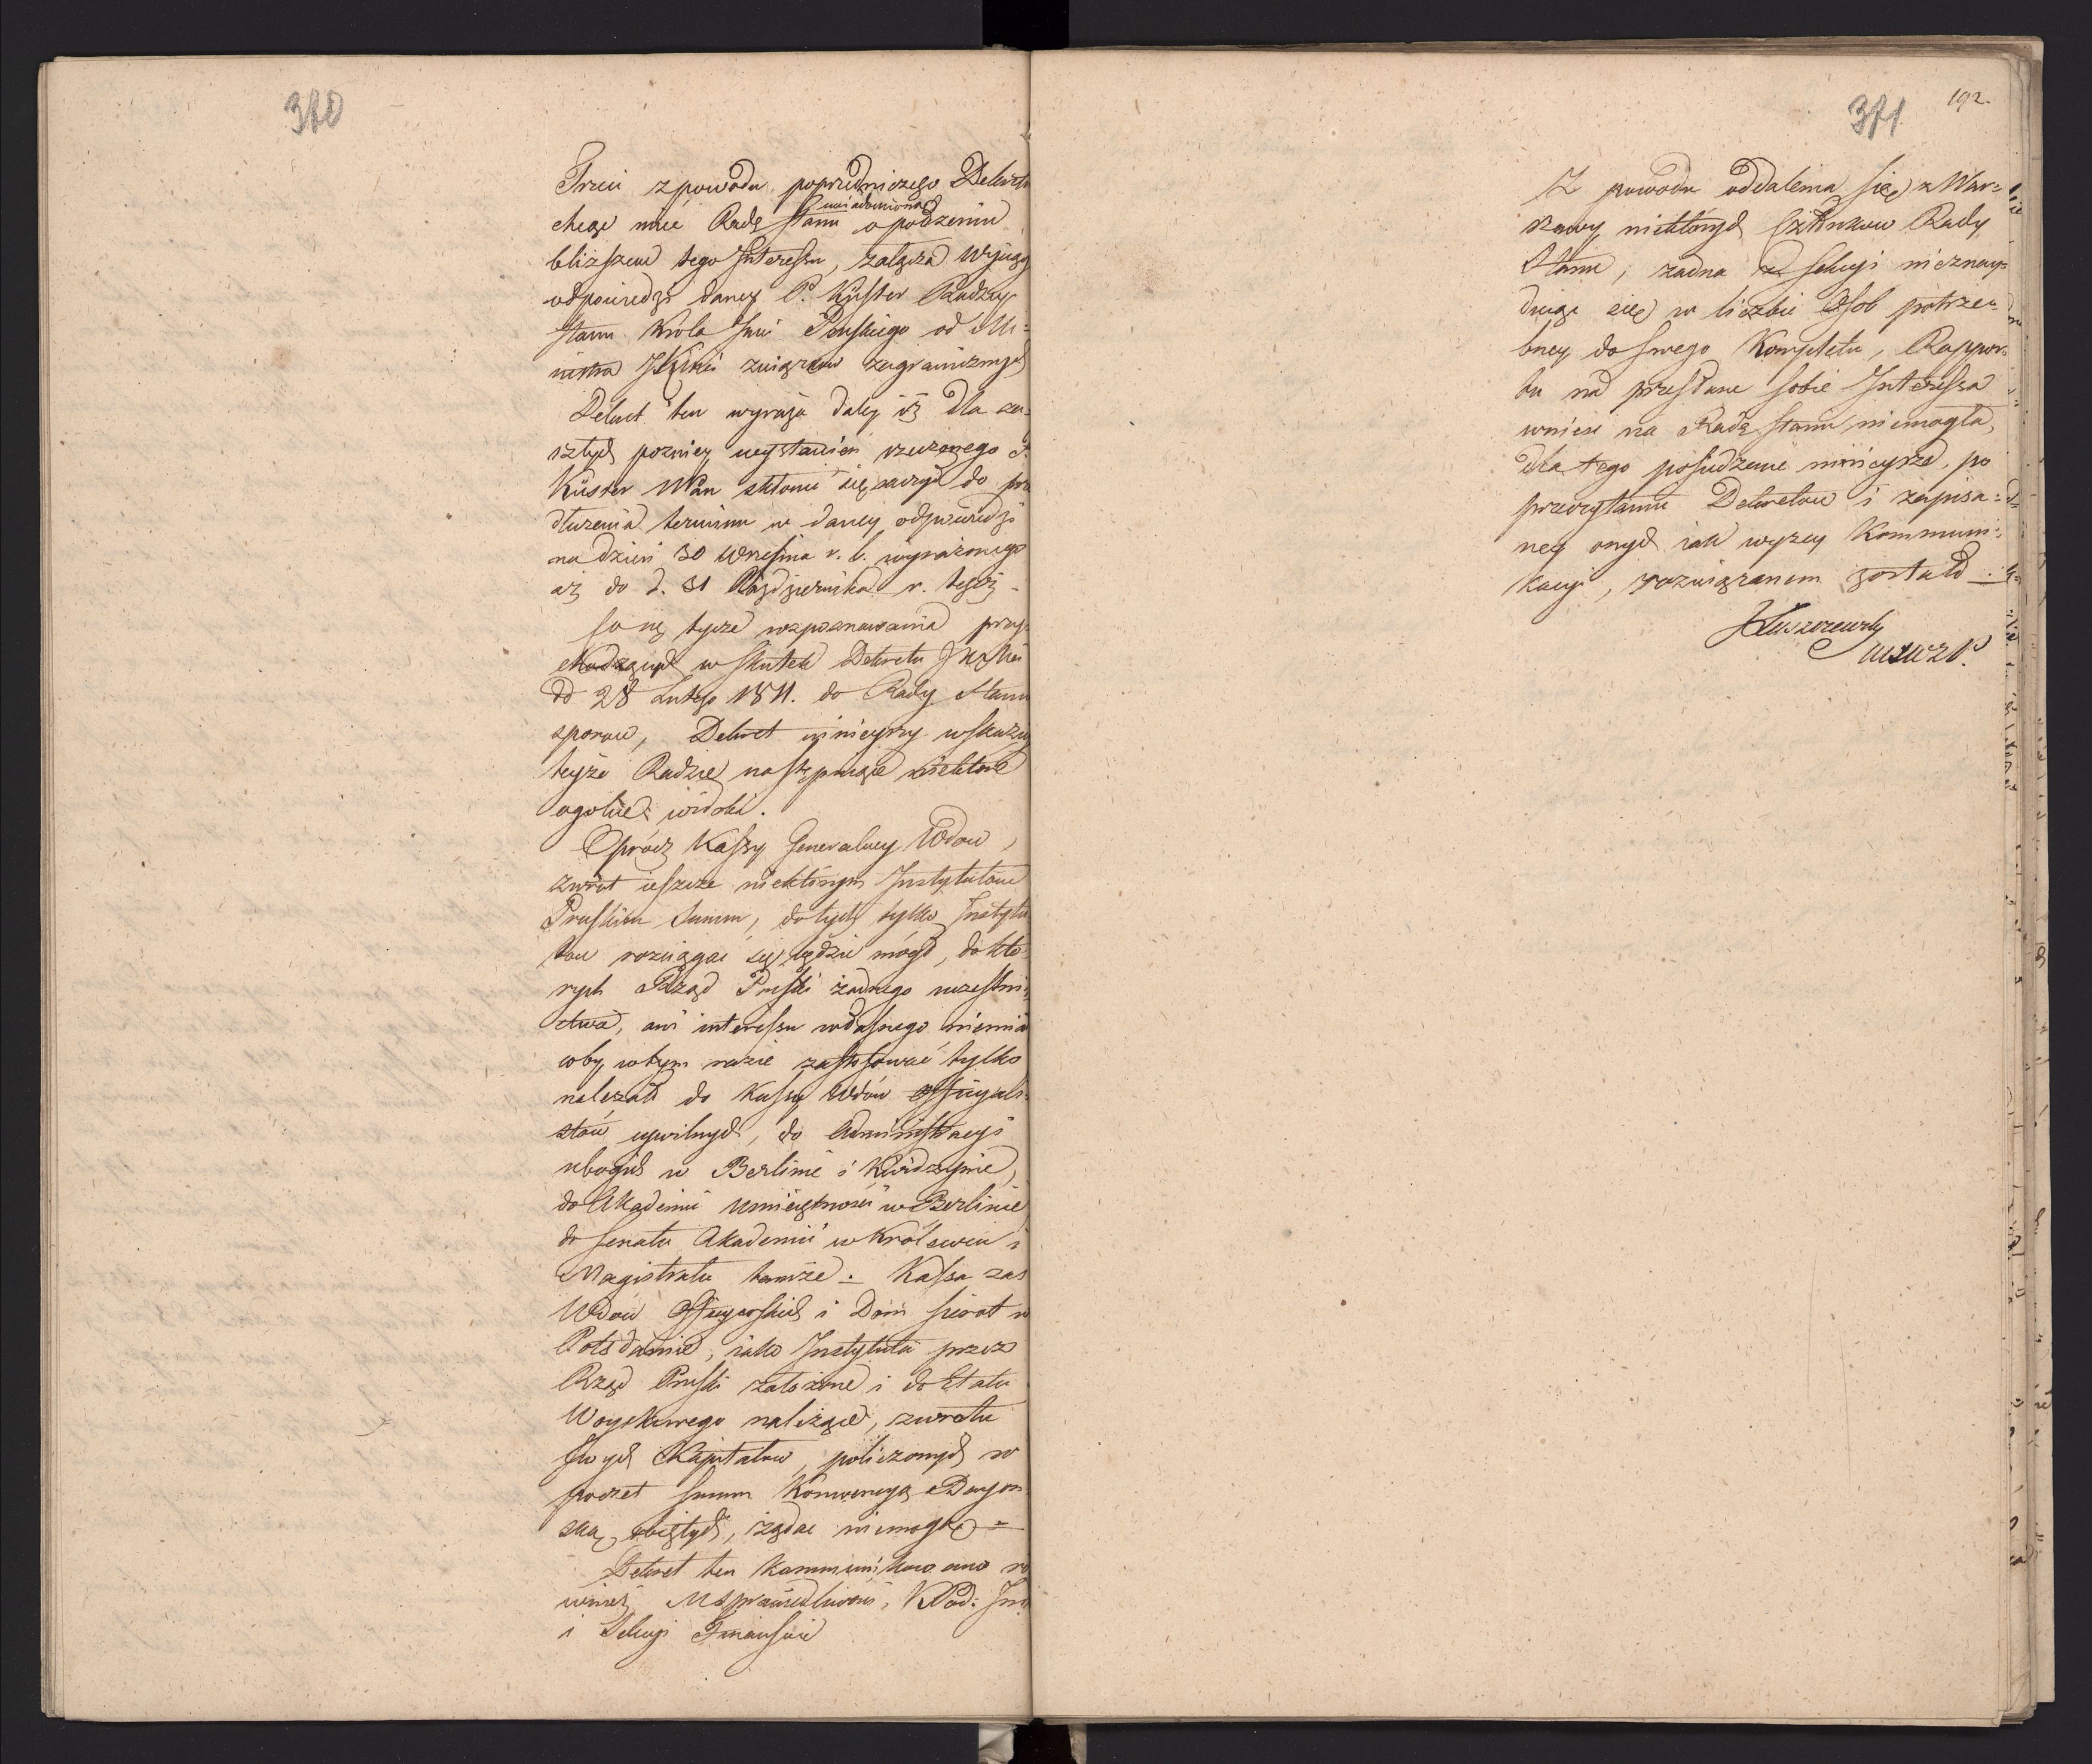 370
Treści z powodu poprzedniczego Dekretu
uwiadomioną
chcąc mieć Radę Stanu o położeniu
bliższem tego Interessu, załącza Wyjątek
odpowiedzi daney P. Küster Radzcy
Stanu Krola Jmci Pruskiego od Mi=
nistra JKMci związkow zagranicznych
Dekret ten wyraża daley iż dla za=
szłych pozniey wystawień rzeczonego P.
Küster NPan skłonić się raczył do prze
dłużenia terminu w daney odpowiedzi
na dzień 30 Września r. b. wyrażonego
aż do d. 31 Października r. tegoż.
Co się tycze rozpoznawania przy=
chodzących w skutek Dekretu JKMci
dd 28 Lutego 1811. do Rady Stanu
sporow, Dekret ninieyszy wskazuje
teyże Radzie następuiące niektóre
ogolne widoki.
Oprócz Kassy Generalney Wdow,
zwrot ieszcze niektórym Instytutom
Pruskim summ, do tych tylko Instytu
tow rozciągać się będzie mógł, do któ=
rych Rząd Pruski żadnego uczestni=
ctwa, ani interessu własnego niemiał
coby w tym razie zastosować tylko
należało do Kassy Wdów Officyali=
stów cywilnych, do Administracyi
ubogich w Berlinie i Kwidzynie,
do Akademii Umieiętności w Berlinie
do Senatu Akademii w Królewcu i
Magistratu tamże. Kassa zaś
Wdow Officyerskich i Dom sierot w
Potsdamie, iako Instytuta przez
Rząd Pruski założone i do Etatu
Woyskowego należące, zwrotu
swych Kapitałow, policzonych w
poczet summ Konwencyą Bayon
ską obiętych, żądać niemogą=
Dekret ten kommunikowano ró
wnież MSprawiedliwości, KPod: Jnn
i Sekcyi Finansów
371
192.
Z powodu oddalenia się z War=
szawy niektórych Członkow Rady
Stanu, żadna z Sekcyi nieznay=
duiąc się w liczbie Osob potrze=
bney do swego Kompletu, Rappor=
tu na przesłane sobie Interessa
wnieść na Radę Stanu niemogła,
dla tego posiedzenie ninieysze, po
przeczytaniu Dekretow i zapisa=
ney onych iak wyżey Kommuni=
kacyi, rozwiązanem zostało
JKLuszczewski